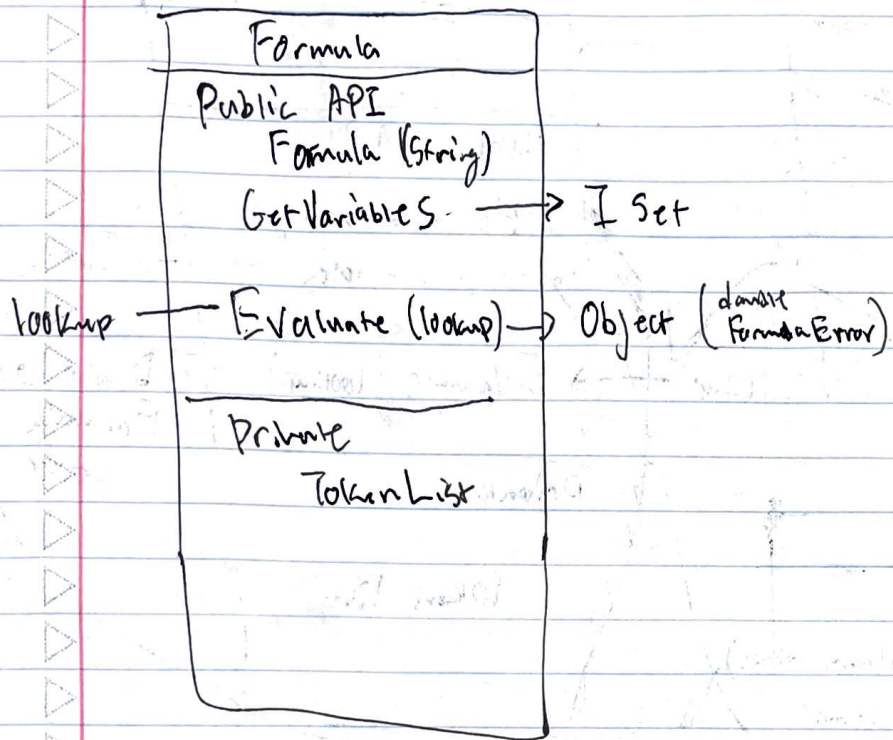 Formula
Public API
Formula (String)
GetVariables → I Set
lookup Evaluate (lookup) → Object (double
FormulaError)
Private
TokenList